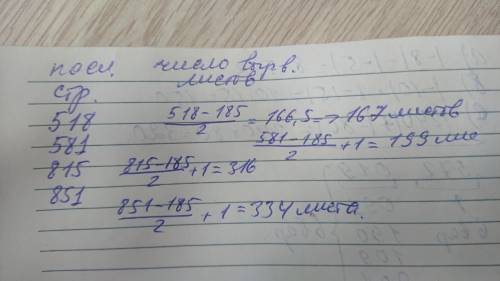 посл. число вырв.
стр. листов
518 518-185/2 = 166,5 => 167 листов
581 581-185/2 + 1 = 199 лис
815 815-185/2 + 1 = 316
851 851-185/2 + 1 = 334 листа.